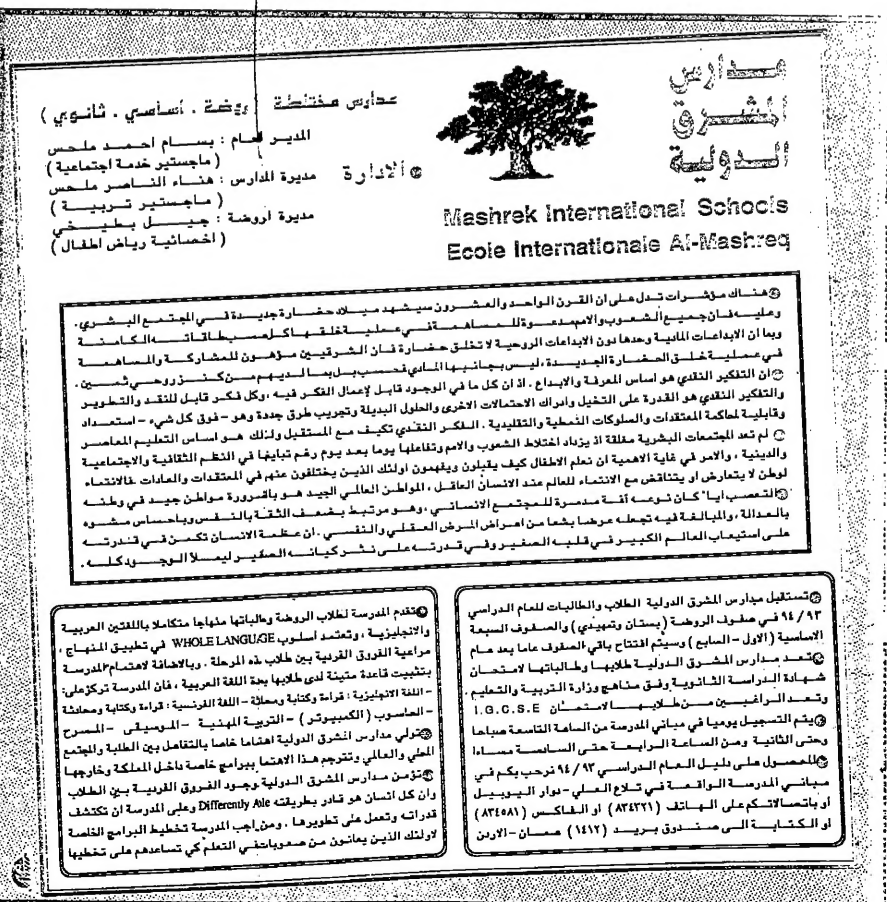 مدارس
المشرق
الدولية
Mashrek International Schools
Ecole Internationale Al-Mashreq
مدارس مختلطة ( روضة . أساسي . ثانوي )
الادارة
المدير العام : بسام احمد ملحس
( ماجستير خدمة اجتماعية )
مديرة المدارس : هناء الناصر ملحس
( ماجستير تربية )
مديرة الروضة : جيل بطيخي
( اخصائية رياض اطفال )
هناك مؤشرات تدل على ان القرن الواحد والعشرون سيشهد ميلاد حضارة جديدة في المجتمع البشري .
وعليه فان جميع الشعوب والامم مدعوة للمساهمة في عملية خلقها كل حسب طاقاته الكامنة
وبما ان الابداعات المادية وحدها دون الابداعات الروحية لا تخلق حضارة فان الشرقيين مؤهلون للمشاركة والمساهمة
في عملية خلق الحضارة الجديدة ، ليس بجانبها المادي فحسب بل بما لديهم من كنز روحي ثمين .
ان التفكير النقدي هو اساس المعرفة والابداع . اذ ان كل ما في الوجود قابل لإعمال الفكر فيه ، وكل فكر قابل للنقد والتطوير
والتفكير النقدي هو القدرة على التخيل وادراك الاحتمالات الاخرى والحلول البديلة وتجريب طرق جددة وهو - فوق كل شيء - استعداد
وقابلية لمحاكمة المعتقدات والسلوكات النمطية والتقليدية . الفكر النقدي تكيف مع المستقبل ولذلك هو اساس التعليم المعاصر
لم تعد المجتمعات البشرية مغلقة اذ يزداد اختلاط الشعوب والامم وتفاعلها يوما بعد يوم رغم تباينها في النظم الثقافية والاجتماعية
والدينية ، والامر في غاية الاهمية ان نعلم الاطفال كيف يقبلون ويفهمون اولئك الذين يختلفون عنهم في المعتقدات والعادات . فالانتماء
لوطن لا يتعارض او يتناقض مع الانتماء للعالم عند الانسان العاقل ، المواطن العالمي الجيد هو بالضرورة مواطن جيد في وطنه
التعصب ايا كان نوعه آفة مدمرة للمجتمع الانساني ، وهو مرتبط بضعف الثقة بالنفس وباحساس مشوه
بالعدالة ، والمبالغة فيه تجعله عرضا بشعا من امراض المرض العقلي والنفسي . ان عظمة الانسان تكمن في قدرته
على استيعاب العالم الكبير في قلبه الصغير وفي قدرته على نشر كيانه الصغير ليملأ الوجود كله .
تستقبل مدارس المشرق الدولية الطلاب والطالبات للعام الدراسي
٩٤/٩٣ في صفوف الروضة ( بستان وتمهيدي ) والصفوف السبعة
الاساسية ( الاول - السابع ) وسيتم افتتاح باقي الصفوف عاما بعد عام
تعد مدارس المشرق الدولية طلابها وطالباتها لامتحان
شهادة الدراسة الثانوية وفق مناهج وزارة التربية والتعليم .
وتعد الراغبين من طلابها لامتحان I.G.C.S.E
يتم التسجيل يوميا في مباني المدرسة من الساعة التاسعة صباحا
وحتى الثانية ومن الساعة الرابعة حتى السادسة مساءا
للحصول على دليل العام الدراسي ٩٤/٩٣ نرحب بكم في
مباني المدرسة الواقعة في تلاع العلي - دوار اليوبيل
أو باتصالاتكم على الهاتف ( ٨٣٤٣٢١ ) او الفاكس ( ٨٣٤٥٨١ )
او الكتابة الى صندوق بريد ( ١٤١٢ ) عمان - الاردن
تقدم المدرسة لطلاب الروضة وطالباتها منهاجا متكاملا باللغتين العربية
والانجليزية ، وتعتمد اسلوب WHOLE LANGUAGE في تطبيق المنهاج ،
مراعية الفروق الفردية بين طلاب هذه المرحلة . وبالاضافة لاهتمام المدرسة
بتثبيت قاعدة متينة لدى طلابها بمدة اللغة العربية ، فان المدرسة تركز على :
- اللغة الانجليزية : قراءة وكتابة ومحادثة - اللغة الفرنسية : قراءة وكتابة ومحادثة
- الحاسوب ( الكمبيوتر ) - التربية المهنية - الموسيقى - المسرح
تولي مدارس المشرق الدولية اهتماما خاصا بالتفاعل بين الطلبة والمجتمع
المحلي والعالمي وتترجم هذا الاهتما ببرامج خاصة داخل المملكة وخارجها
تؤمن مدارس المشرق الدولية وجود الفروق الفردية بين الطلاب
وأن كل انسان هو قادر بطريقته Differently Able وعلى المدرسة ان تكتشف
قدراته وتعمل على تطويرها . ومن اجب المدرسة تخطيط البرامج الخاصة
لاولئك الذين يعانون من صعوبات في التعلم كي تساعدهم على تخطيها